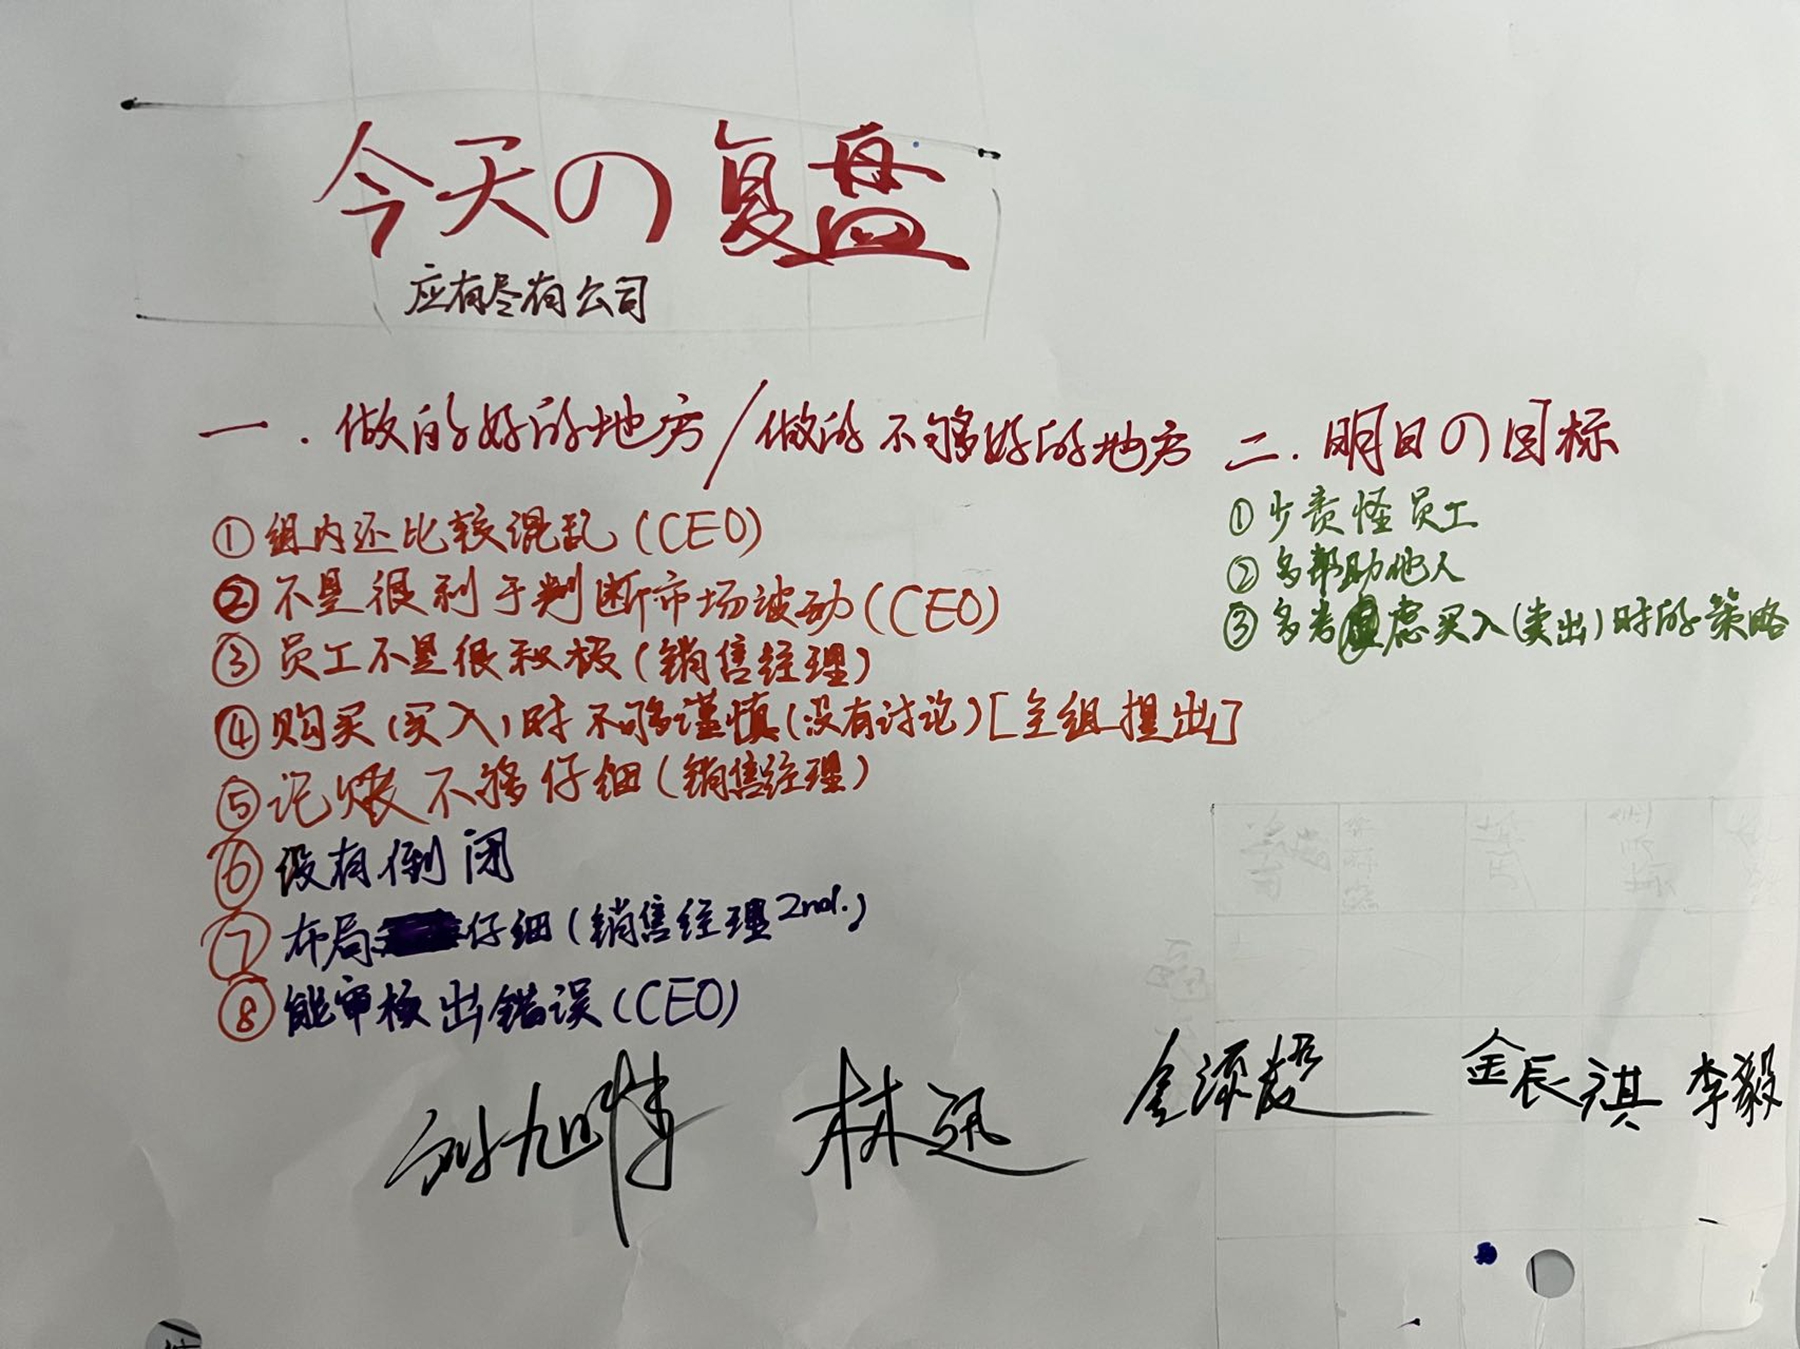 今天の复盘
应有尽有公司
一.做的好的地方/做的不够好的地方
①组内还比较混乱(CEO)
②不是很利于判断市场波动(CEO)
③员工不是很积极(销售经理)
④购买(买入)时不够谨慎(没有讨论)[全组提出]
⑤记账不够仔细(销售经理)
⑥没有倒闭
⑦布局仔细(销售经理2nd.)
⑧能审核出错误(CEO)
二.明日の目标
①少责怪员工
②多帮助他人
③多考虑买入(卖出)时的策略
林迅
金辰祺
李毅